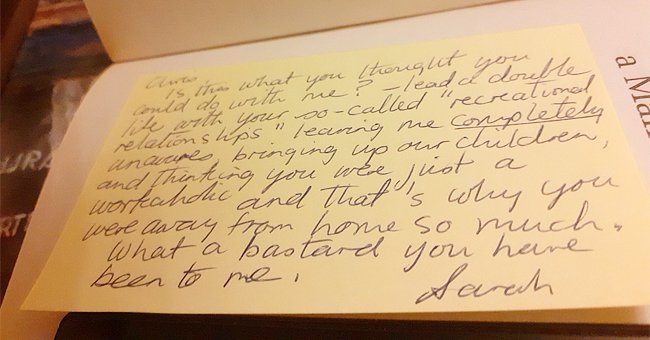 Chris
Is this what you thought you
could do with me? – lead a double
life with your so-called "recreational
relationships" leaving me completely
unawares, bringing up our children,
and thinking you were just a
workaholic and that's why you
were away from home so much.
What a bastard you have
been to me.
Sarah
a Man
URA
RT